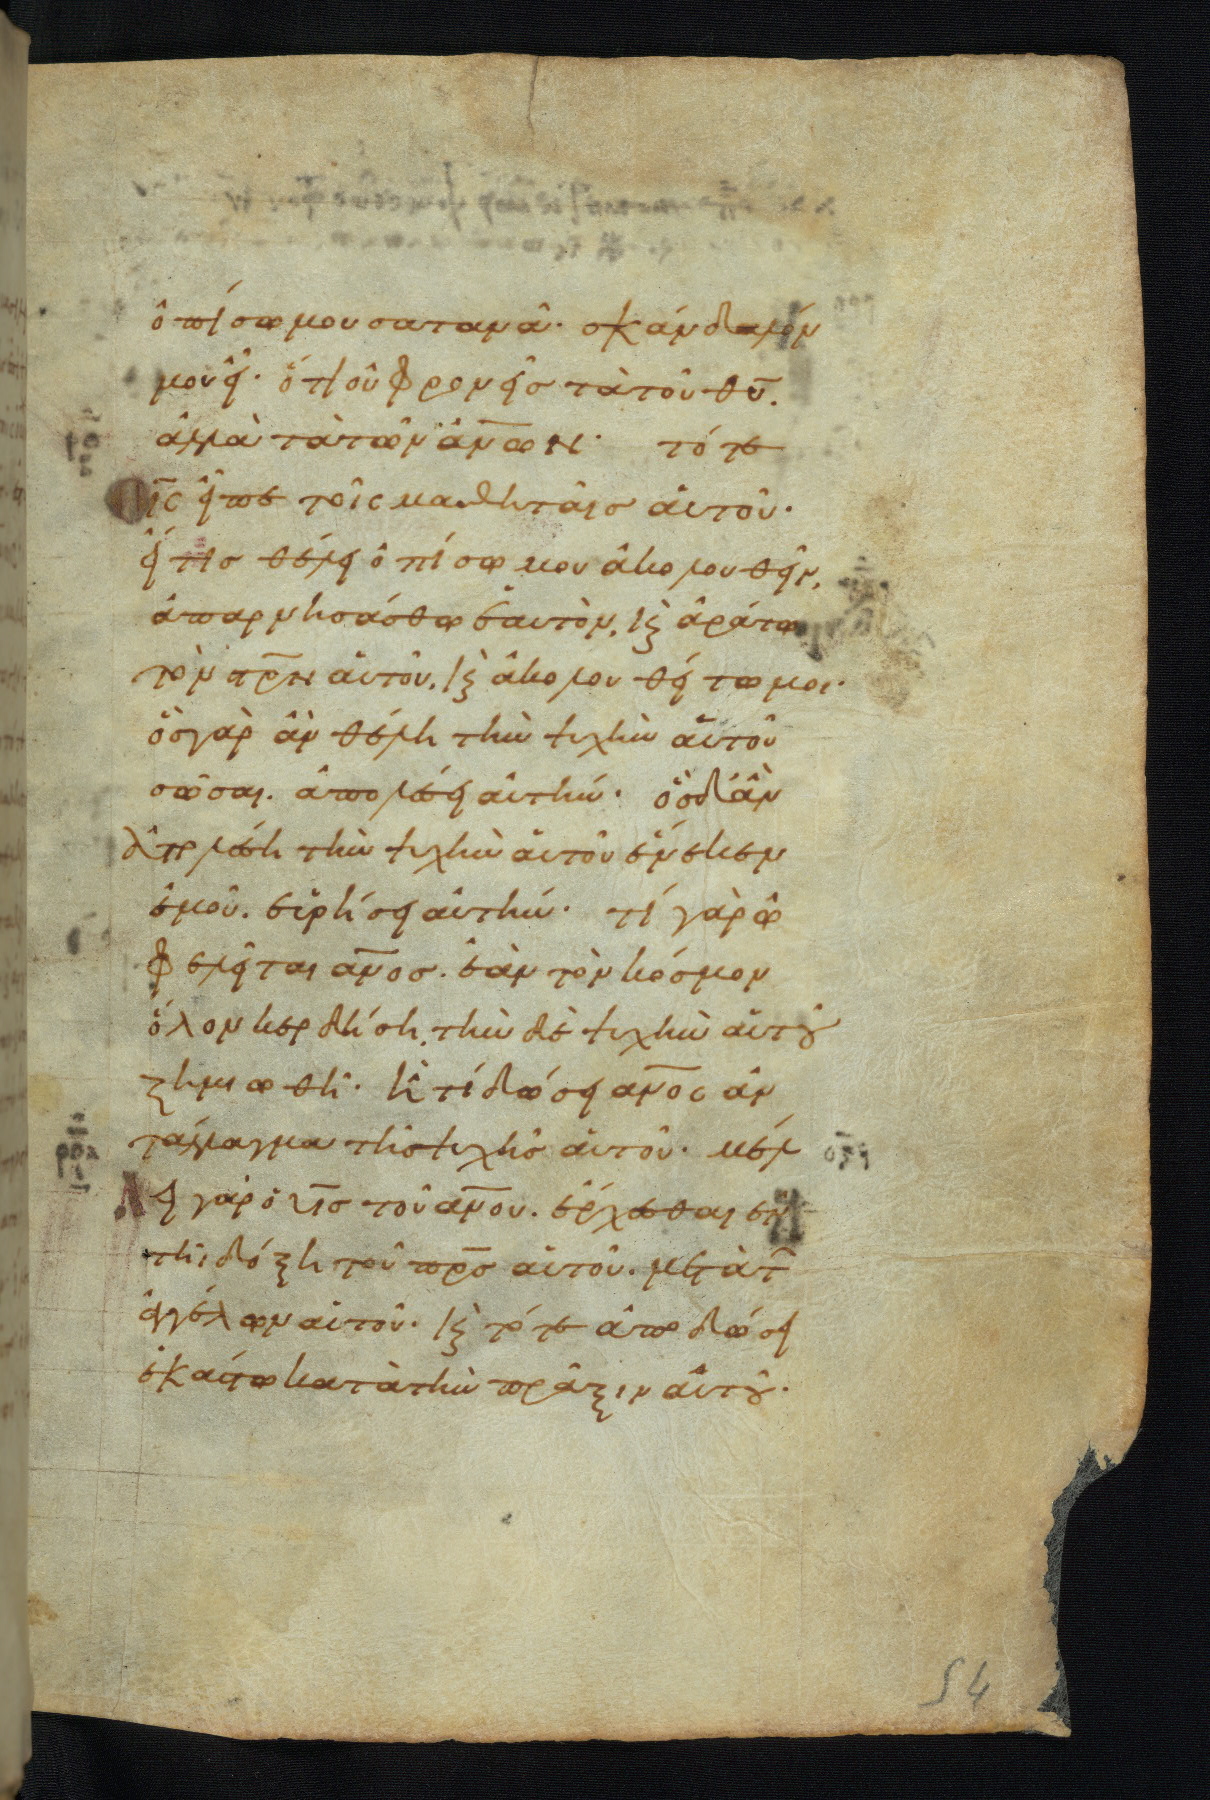 ὀπίσω μου σατανᾶ· σκάνδαλόν
μου εἶ· ὅτι οὐ φρονεῖσ τὰ τοῦ θ̅υ̅.
ἀλλὰ τὰ τῶν ἀν̅ω̅ν· τότε
ι̅ς̅ εἶπε τοῖς μαθηταῖσ αὐτοῦ·
εἴ τισ θέλει ὀπίσω μου ἀκολουθεῖν,
ἀπαρνησάσθω ἑαυτὸν, κ̀ ἀράτω
τὸν σ̅ρ̅ν̅ αὐτοῦ, κ̀ ἀκολουθείτω μοι·
ὃσ γὰρ ἂν θέλη τὴν ψυχὴν αὐτοῦ
σῶσαι. ἀπολέσει αὐτήν· ὃσ δ' ἂν
ἀπολέση τὴν ψυχὴν αὐτοῦ ἕνεκεν
ἐμοῦ. εὑρήσει αὐτήν· τί γὰρ ὠ
φελεῖται α̅ν̅οσ. ἐὰν τὸν κόσμον
ὅλον κερδήση, τὴν δὲ ψυχὴν αὐτοῦ
ζημιωθῆ· ἢ τί δώσει α̅ν̅ος ἀν
τάλλαγμα τῆσ ψυχῆσ αὐτοῦ· μέλ
λει γὰρ ὁ υ̅ι̅σ τοῦ α̅ν̅ου. ἔρχεσθαι ἐν
τῆι δόξη τοῦ π̅ρ̅σ αὐτοῦ. μετὰ τ̅
ἀγγέλων αὐτοῦ· κ̀ τότε ἀποδώσει
ἑκάστω κατὰ τὴν πρᾶξιν αὐτοῦ·
54